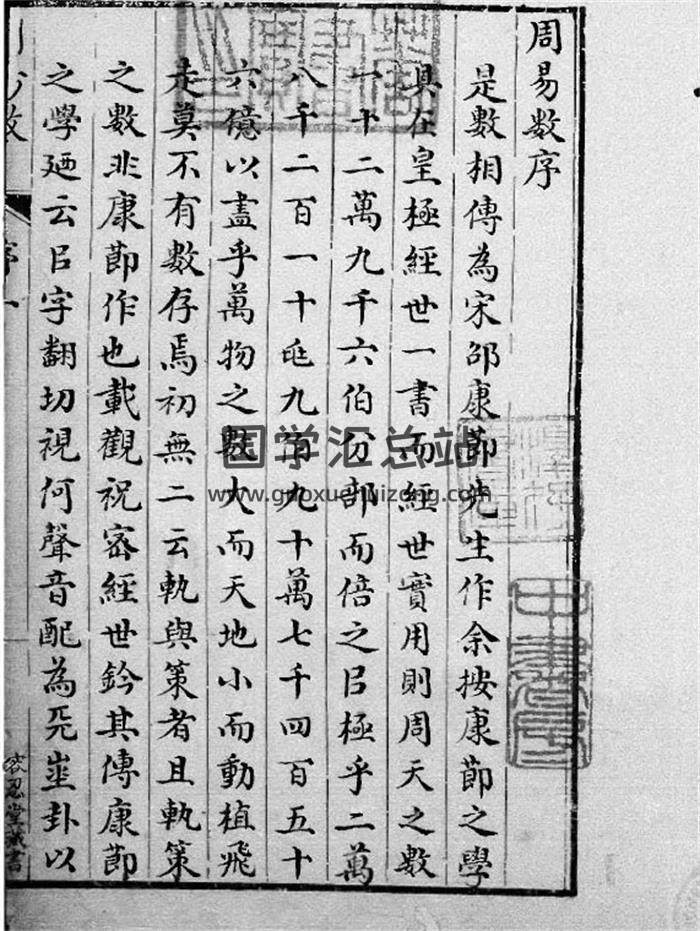 周易數序
是數相傳為宋邵康節先生作余按康節之學
具在皇極經世一書而經世實用則周天之數
一十二萬九千六伯分部而倍之㠯極乎二萬
八千二百一十乇九百九十萬七千四百五十
六億以盡乎萬物之數大而天地小而動植飛
走莫不有數存焉初無二云軌與策者且軌策
之數非康節作也載觀祝宓經世鈐其傳康節
之學廼云㠯字翻切視何聲音配為卦以
序一
容忍堂藏書
国学汇总站
www.guoxuehuizong.com